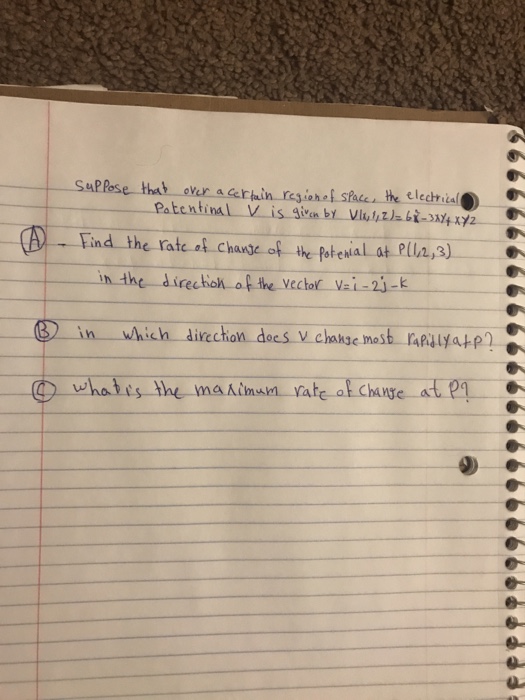 Suppose that over a certain region of space, the electrical
Potentinal V is given by V(x,y,z)=6x²-3xy+xyz
A - Find the rate of change of the potenial at P(1,2,3)
in the direction of the vector v=i-2j-k
B in which direction does v change most rapidly at p?
C what is the maximum rate of change at P?